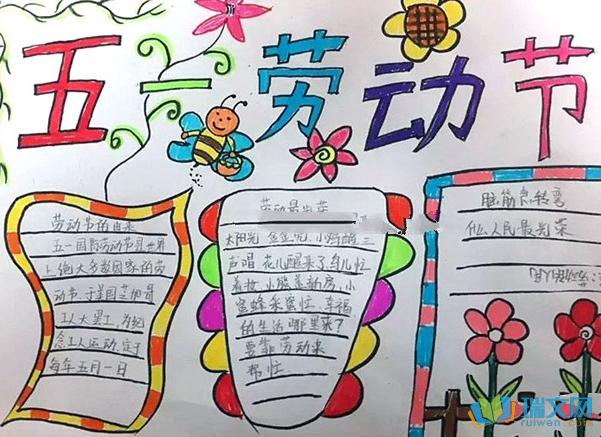 五一劳动节
劳动节的由来
五一国际劳动节是世界
上绝大多数国家的劳
动节.于美国芝加哥
工人大罢工,为纪
念工人运动,定于
每年五月一日
劳动最光荣
太阳光 金亮亮,小鸡唱三
声唱 花儿醒来了,鸟儿忙
着妆 小 新房,小
蜜蜂采蜜忙 幸福
的生活哪里来了
要靠劳动来
帮忙
脑筋急转弯
什么人民最光荣
瑞文网
ruiwen.com